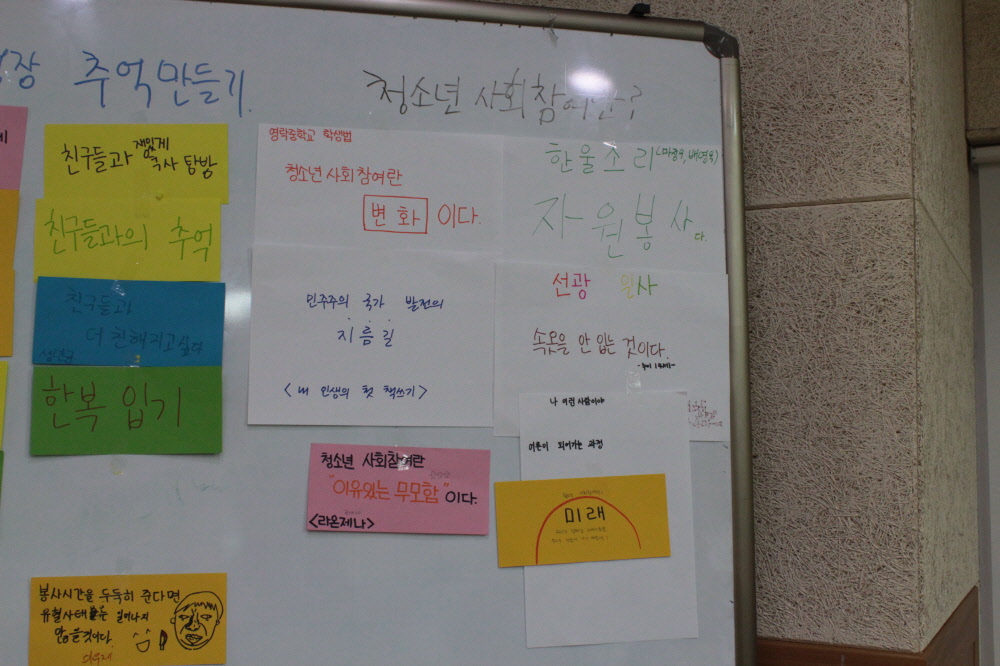 추억만들기
청소년 사회참여란?
친구들과 재밌게 역사 탐방
친구들과의 추억
친구들과
더 친해지고싶다
한복 입기
봉사시간을 두둑히 준다면
유혈사태는 일어나지
않을것이다.
영락중학교 학생법
청소년 사회참여란
변화 이다.
민주주의 국가 발전의
지름길
<내 인생의 첫 책쓰기>
청소년 사회참여란
"이유있는 무모함"이다
<라온제나>
한울소리
자원봉사다.
선광
속옷을 안 입는 것이다.
나 이런사람이야
어른이 되어가는 과정
미래